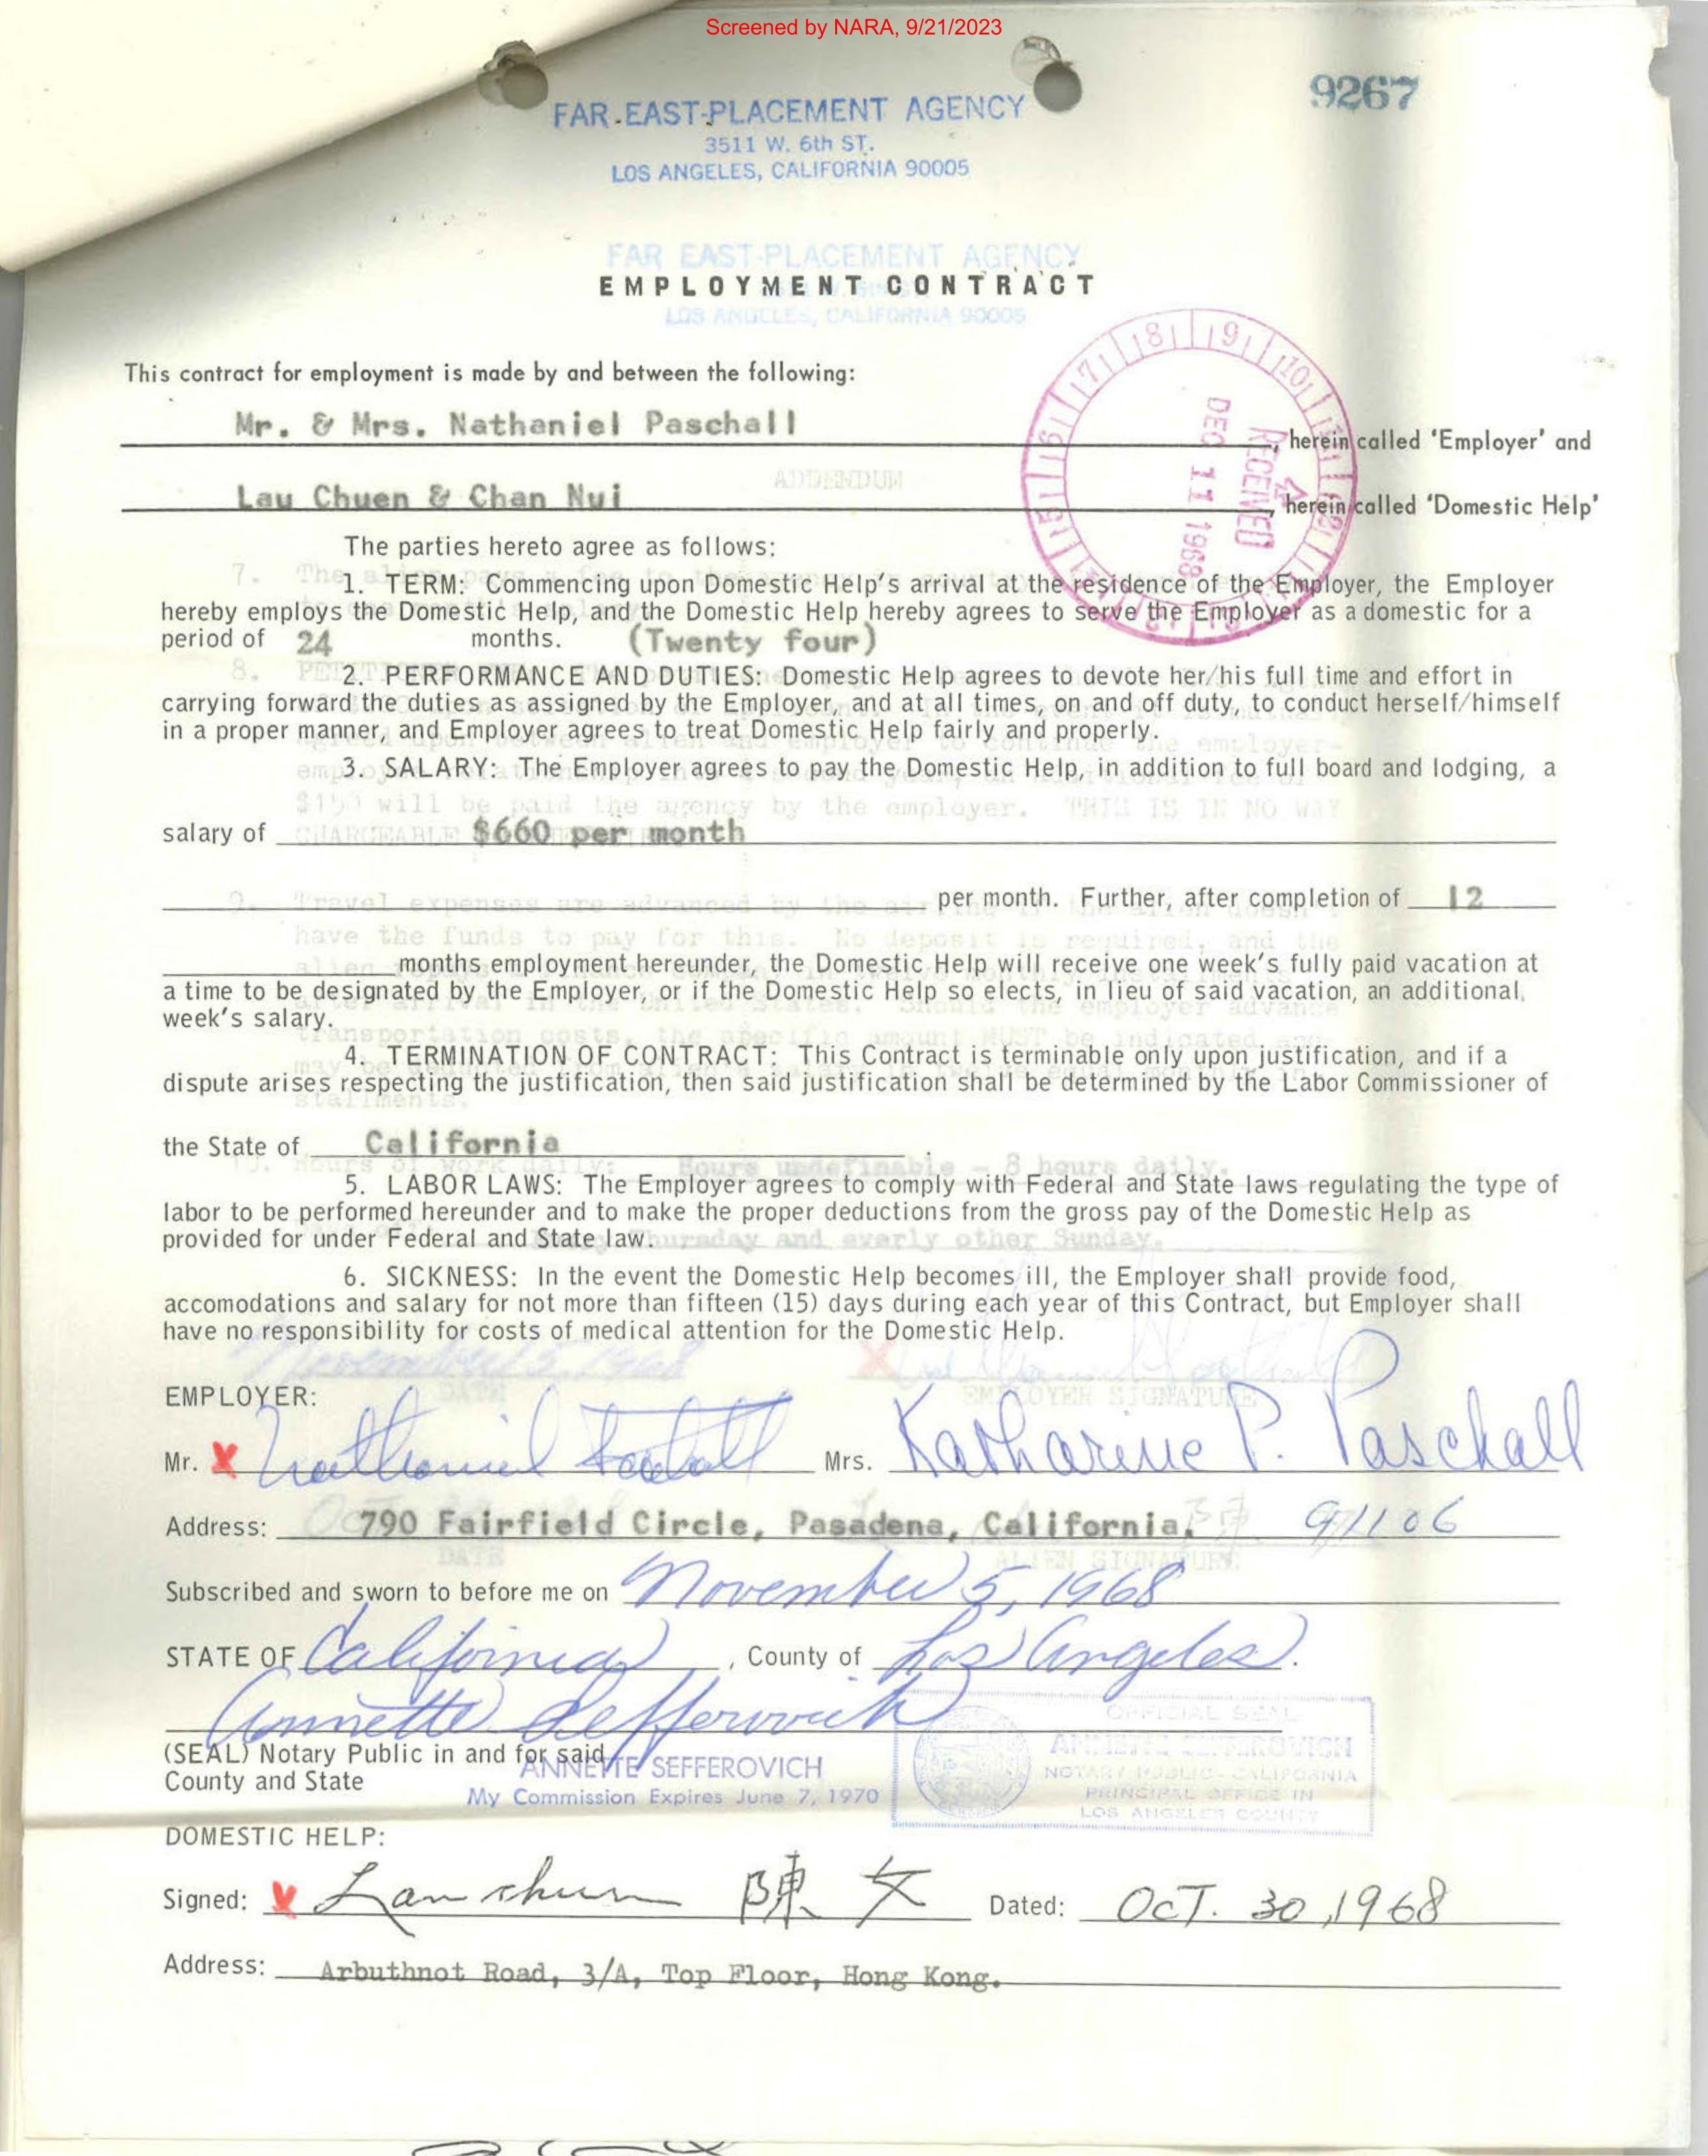 Screened by NARA, 9/21/2023
9267
FAR EAST-PLACEMENT AGENCY
3511 W. 6th ST.
LOS ANGELES, CALIFORNIA 90005
FAR EAST-PLACEMENT AGENCY
EMPLOYMENT CONTRACT
LOS ANGELES, CALIFORNIA 90005
This contract for employment is made by and between the following:
Mr. & Mrs. Nathaniel Paschall , herein called 'Employer' and
ADDENDUM
Lau Chuen & Chan Nui , herein called 'Domestic Help'
RECEIVED
DEC 11 1968
The parties hereto agree as follows:
1. TERM: Commencing upon Domestic Help's arrival at the residence of the Employer, the Employer
hereby employs the Domestic Help, and the Domestic Help hereby agrees to serve the Employer as a domestic for a
period of 24 months. (Twenty four)
2. PERFORMANCE AND DUTIES: Domestic Help agrees to devote her/his full time and effort in
carrying forward the duties as assigned by the Employer, and at all times, on and off duty, to conduct herself/himself
in a proper manner, and Employer agrees to treat Domestic Help fairly and properly.
3. SALARY: The Employer agrees to pay the Domestic Help, in addition to full board and lodging, a
$150 will be paid the agency by the employer. THIS IS IN NO WAY
salary of $660 per month
per month. Further, after completion of 12
have the funds to pay for this. No deposit is required, and the
months employment hereunder, the Domestic Help will receive one week's fully paid vacation at
a time to be designated by the Employer, or if the Domestic Help so elects, in lieu of said vacation, an additional
week's salary.
4. TERMINATION OF CONTRACT: This Contract is terminable only upon justification, and if a
dispute arises respecting the justification, then said justification shall be determined by the Labor Commissioner of
the State of California .
Hours of work daily: Hours undefinable - 8 hours daily.
5. LABOR LAWS: The Employer agrees to comply with Federal and State laws regulating the type of
labor to be performed hereunder and to make the proper deductions from the gross pay of the Domestic Help as
provided for under Federal and State law.
Thursday and everly other Sunday.
6. SICKNESS: In the event the Domestic Help becomes ill, the Employer shall provide food,
accomodations and salary for not more than fifteen (15) days during each year of this Contract, but Employer shall
have no responsibility for costs of medical attention for the Domestic Help.
November 5, 1968
DATE EMPLOYER SIGNATURE
EMPLOYER:
Mr. X Nathaniel Paschall Mrs. Katharine P. Paschall
Address: 790 Fairfield Circle, Pasadena, California. 91106
DATE ALIEN SIGNATURE
Subscribed and sworn to before me on November 5, 1968
STATE OF California , County of Los Angeles.
Annette Sefferovich
(SEAL) Notary Public in and for said
County and State
ANNETTE SEFFEROVICH
My Commission Expires June 7, 1970
OFFICIAL SEAL
ANNETTE SEFFEROVICH
NOTARY PUBLIC - CALIFORNIA
PRINCIPAL OFFICE IN
LOS ANGELES COUNTY
DOMESTIC HELP:
Signed: X Lau chuen 陳女 Dated: OCT. 30, 1968
Address: Arbuthnot Road, 3/A, Top Floor, Hong Kong.